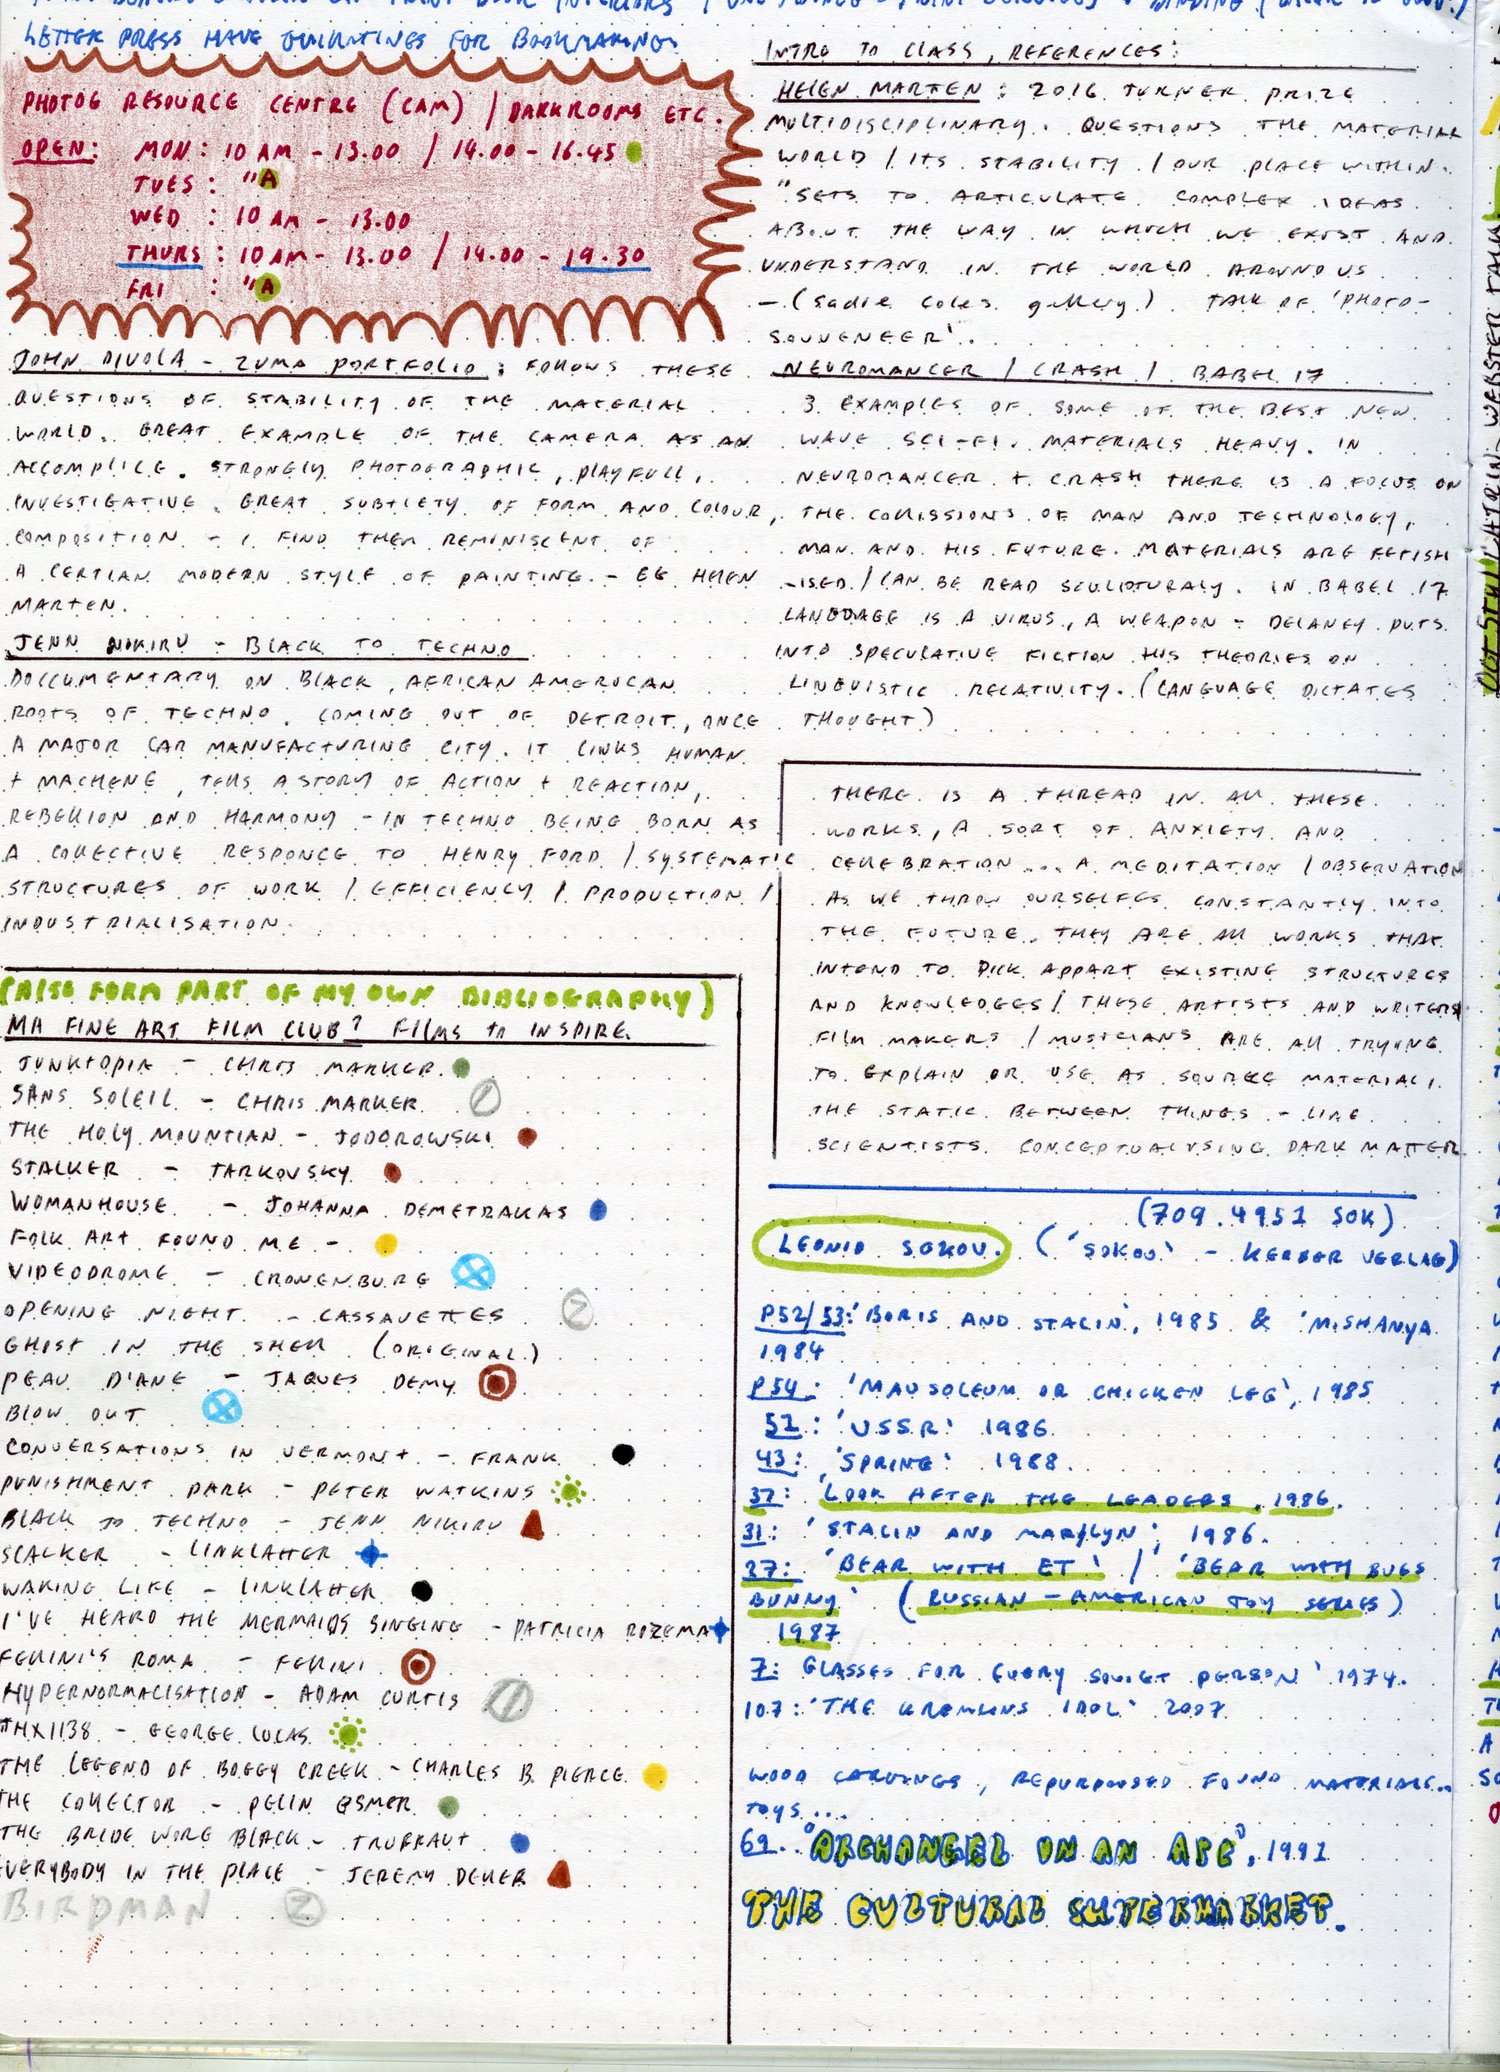 LETTER PRESS HAVE GUILLOTINES FOR BOOKMAKING
PHOTOG RESOURCE CENTRE (CAM) / DARKROOMS ETC.
OPEN: MON: 10 AM - 13.00 / 14.00 - 16.45
TUES: "A
WED: 10 AM - 13.00
THURS: 10 AM - 13.00 / 14.00 - 19.30
FRI: "A
JOHN DIVOLA - ZUMA PORTFOLIO: FOLLOWS THESE
QUESTIONS OF STABILITY OF THE MATERIAL
WORLD. GREAT EXAMPLE OF THE CAMERA AS AN
ACCOMPLICE. STRONGLY PHOTOGRAPHIC, PLAYFULL,
INVESTIGATIVE. GREAT SUBTLETY OF FORM AND COLOUR,
COMPOSITION - I FIND THEM REMINISCENT OF
A CERTIAN MODERN STYLE OF PAINTING - EG HELEN
MARTEN.
JENN NKIRU - BLACK TO TECHNO
DOCCUMENTARY ON BLACK, AFRICAN AMERUCAN
ROOTS OF TECHNO. COMING OUT OF DETROIT, ONCE
A MAJOR CAR MANUFACTURING CITY. IT LINKS HUMAN
+ MACHENE, TELLS A STORY OF ACTION + REACTION,
REBELLION AND HARMONY - IN TECHNO BEING BORN AS
A COLLECTIVE RESPONCE TO HENRY FORD / SYSTEMATIC
STRUCTURES OF WORK / EFFICIENCY / PRODUCTION /
INDUSTRIALISATION.
(ALSO FORM PART OF MY OWN BIBLIOGRAPHY)
MA FINE ART FILM CLUB? FILMS TO INSPIRE.
JUNKTOPIA - CHRIS MARKER
SANS SOLEIL - CHRIS MARKER 1
THE HOLY MOUNTIAN - JODOROWSKI
STALKER - TARKOVSKY
WOMANHOUSE - JOHANNA DEMETRAKAS
FOLK ART FOUND ME -
VIDEODROME - CRONENBURG
OPENING NIGHT - CASSAVETTES 2
GHOST IN THE SHELL (ORIGINAL)
PEAU D'ANE - JAQUES DEMY
BLOW OUT
CONVERSATIONS IN VERMONT - FRANK
PUNISHMENT PARK - PETER WATKINS
BLACK TO TECHNO - JENN NIKIRU
SLACKER - LINKLATTER
WAKING LIFE - LINKLATTER
I'VE HEARD THE MERMAIDS SINGING - PATRICIA ROZEMA
FELLINI'S ROMA - FELLINI
HYPERNORMALISATION - ADAM CURTIS 1
THX1138 - GEORGE LUCAS
THE LEGEND OF BOGGY CREEK - CHARLES B. PIERCE
THE COLLECTOR - PELIN ESMER
THE BRIDE WORE BLACK - TRUFFAUT
EVERYBODY IN THE PLACE - JEREMY DELLER
BIRDMAN 2
INTRO TO CLASS, REFERENCES:
HELEN MARTEN: 2016 TURNER PRIZE
MULTIDISCIPLINARY. QUESTIONS THE MATERIAL
WORLD / ITS STABILITY / OUR PLACE WITHIN.
"SETS TO ARTICULATE COMPLEX IDEAS
ABOUT THE WAY IN WHICH WE EXIST AND
UNDERSTAND IN THE WORLD AROUND US
- (Sadie Coles gallery) TALK OF 'PHOTO-
SOUVENEER'.
NEUROMANCER / CRASH / BABEL 17
3 EXAMPLES OF SOME OF THE BEST NEW
WAVE SCI-FI. MATERIALS HEAVY. IN
NEUROMANCER + CRASH THERE IS A FOCUS ON
THE COLLISSIONS OF MAN AND TECHNOLOGY,
MAN AND HIS FUTURE. MATERIALS ARE FETISH
-ISED / CAN BE READ SCULPTURALY. IN BABEL 17
LANGUAGE IS A VIRUS, A WEAPON - DELANEY PUTS
INTO SPECULATIVE FICTION HIS THEORIES ON
LINGUISTIC RELATIVITY. (LANGUAGE DICTATES
THOUGHT)
THERE IS A THREAD IN ALL THESE
WORKS, A SORT OF ANXIETY AND
CELEBRATION... A MEDITATION / OBSERVATION
AS WE THROW OURSELFES CONSTANTLY INTO
THE FUTURE. THEY ARE ALL WORKS THAT
INTEND TO PICK APPART EXISTING STRUCTURES
AND KNOWLEDGES / THESE ARTISTS AND WRITERS
FILM MAKERS / MUSICIANS ARE ALL TRYING
TO EXPLAIN OR USE AS SOURCE MATERIAL,
THE STATIC BETWEEN THINGS - LIKE
SCIENTISTS CONCEPTUALYSING DARK MATTER
(709.4951 SOK)
LEONID SOKOV. ('SOKOV' - KERBER VERLAG)
P52/53: 'BORIS AND STALIN', 1985 & 'MISHANYA
1984
P54: 'MAUSOLEUM OR CHICKEN LEG', 1985
51: 'USSR' 1986
43: 'SPRING' 1988.
37: LOOK AFTER THE LEADERS, 1986.
31: 'STALIN AND MARILYN', 1986.
27: 'BEAR WITH ET' / 'BEAR WITH BUGS
BUNNY' (RUSSIAN - AMERICAN TOY SERIES)
1987
7: GLASSES FOR EVERY SOVIET PERSON' 1974.
107: 'THE KREMLINS IDOL' 2007
WOOD CARVINGS, REPURPOSED FOUND MATERIALS...
TOYS...
69. 'ARCHANGEL ON AN APE', 1991
THE CULTURAL SUPERMARKET.